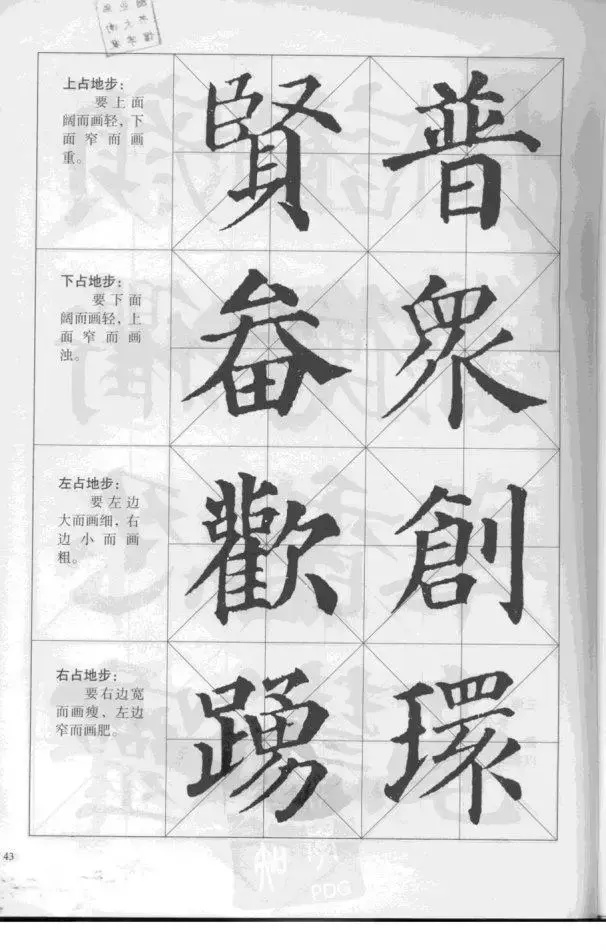 上占地步：
要上面
阔而画轻，下
面窄而画
重。
賢 普
下占地步：
要下面
阔而画轻，上
面窄而画
浊。
畚 眾
左占地步：
要左边
大而画细，右
边小而画
粗。
歡 創
右占地步：
要右边宽
而画瘦、左边
窄而画肥。
踴 環
43
PDG